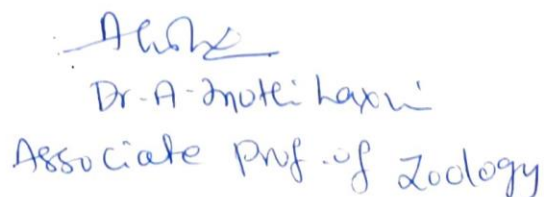 Dr. A. Muthi Laxmi
Associate Prof. of Zoology